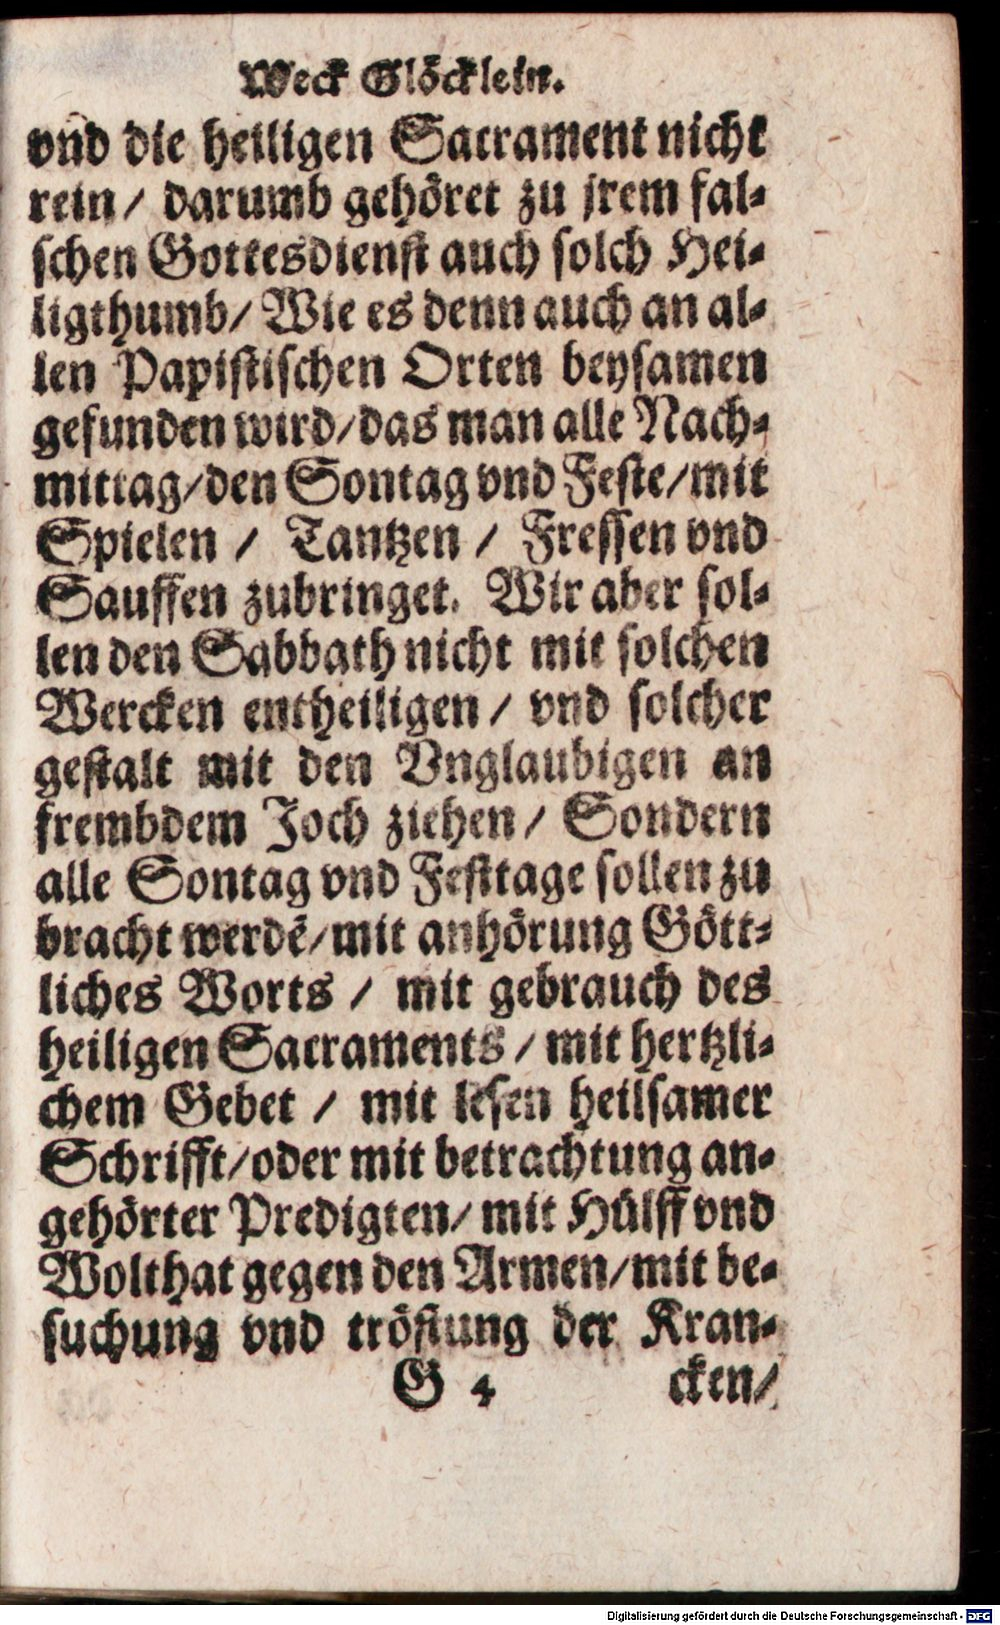 Weck Glöcklein.
vnd die heiligen Sacrament nicht
rein / darumb gehöret zu jrem fal⸗
schen Gottesdienst auch solch Hei⸗
ligthumb / Wie es denn auch an al⸗
len Papistischen Orten beysamen
gefunden wird / das man alle Nach⸗
mittag / den Sontag vnd Feste / mit
Spielen / Tantzen / Fressen vnd
Sauffen zubringet. Wir aber sol⸗
len den Sabbath nicht mit solchen
Wercken entheiligen / vnd solcher
gestalt mit den Vnglaubigen an
frembdem Joch ziehen / Sondern
alle Sontag vnd Festtage sollen zu
bracht werdẽ / mit anhörung Gött⸗
liches Worts / mit gebrauch des
heiligen Sacraments / mit hertzli⸗
chem Gebet / mit lesen heilsamer
Schrifft / oder mit betrachtung an⸗
gehörter Predigten / mit Hülff vnd
Wolthat gegen den Armen / mit be⸗
suchung vnd tröstung der Kran⸗
G 4 cken /
Digitalisierung gefördert durch die Deutsche Forschungsgemeinschaft - DFG